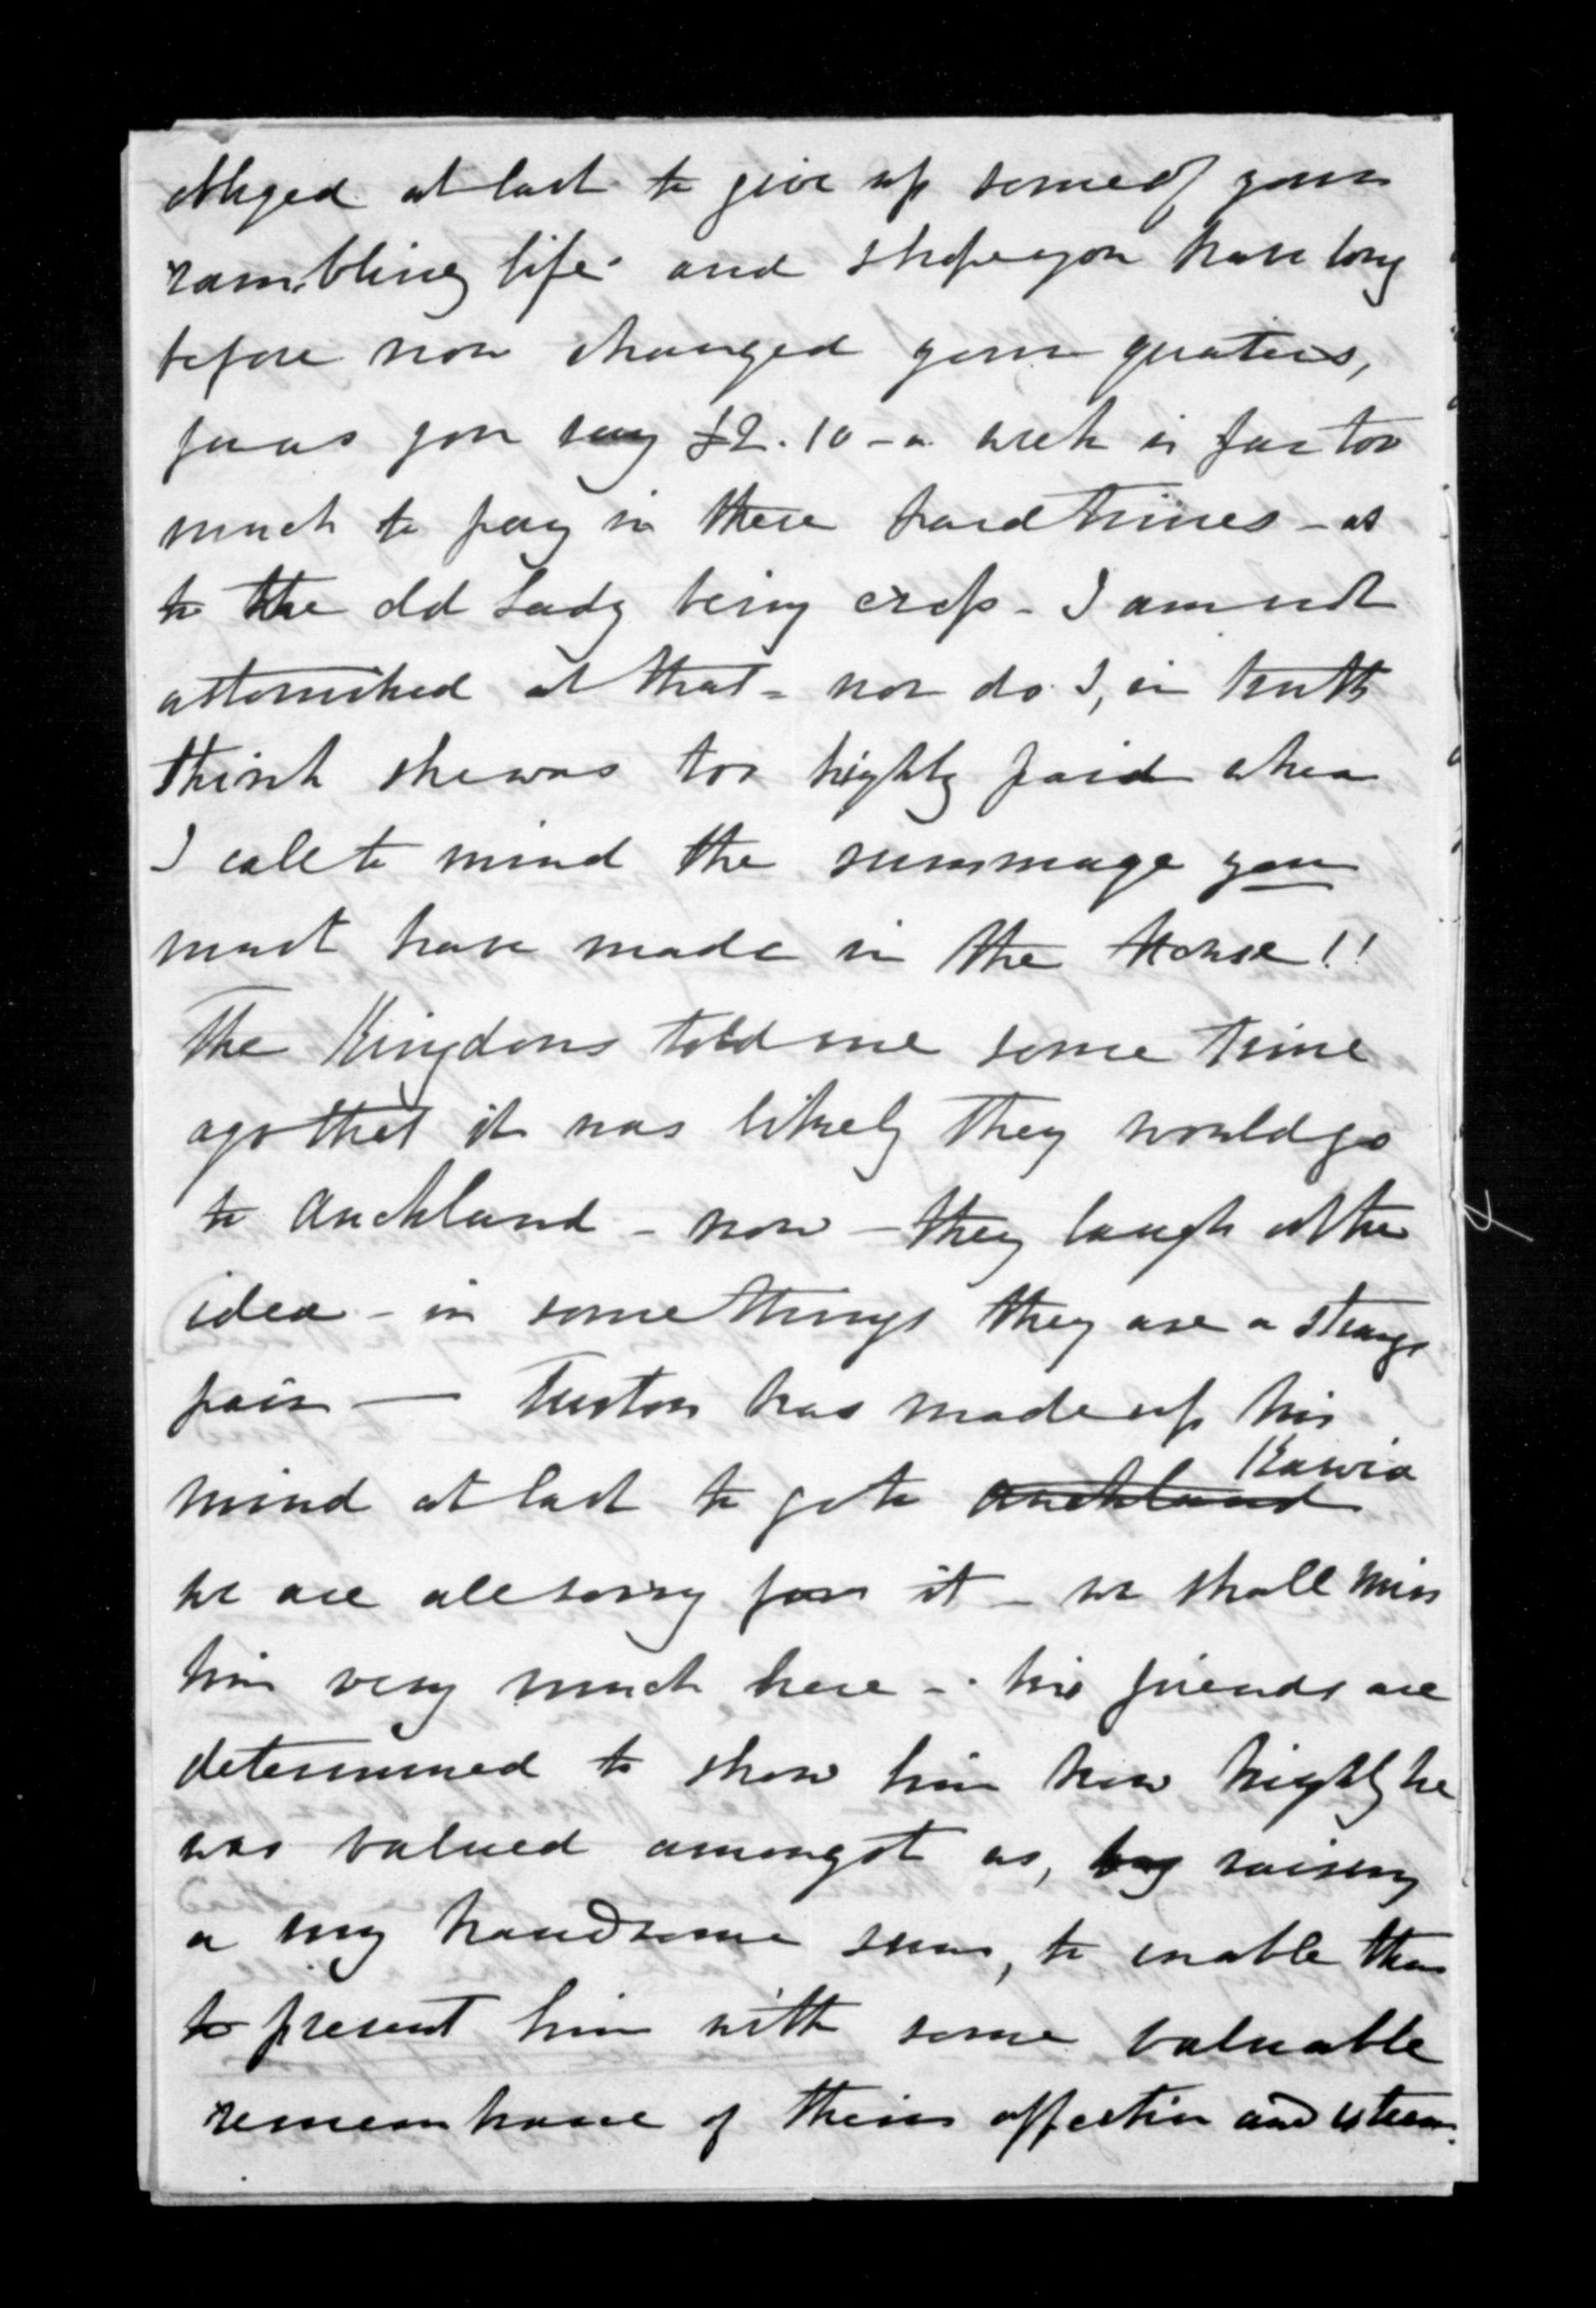 obliged at last to give up some of your
rambling life and I hope you have long
before now changed your quaters,
for as you say £2.10 - a week is far too
much to pay in these hard times - as
to the old Lady being cross - I am not
astonished at that - nor do I, in truth
think she was too highly paid when
I call to mind the rummage you
must have made in the House!!
The Kingdons told me some time
ago that it was likely they would go
to Auckland - now - they laugh at the
idea - in some things they are a strange
pair — Turton has made up his
mind at last to go to Auckland Kawia
we are all sorry for it - we shall miss
him very much here - his friends are
determined to show him how highly he
was valued amongst us, by raising
a very handsome sum, to enable them
to present him with some valuable
remembrance of their affection and esteem.